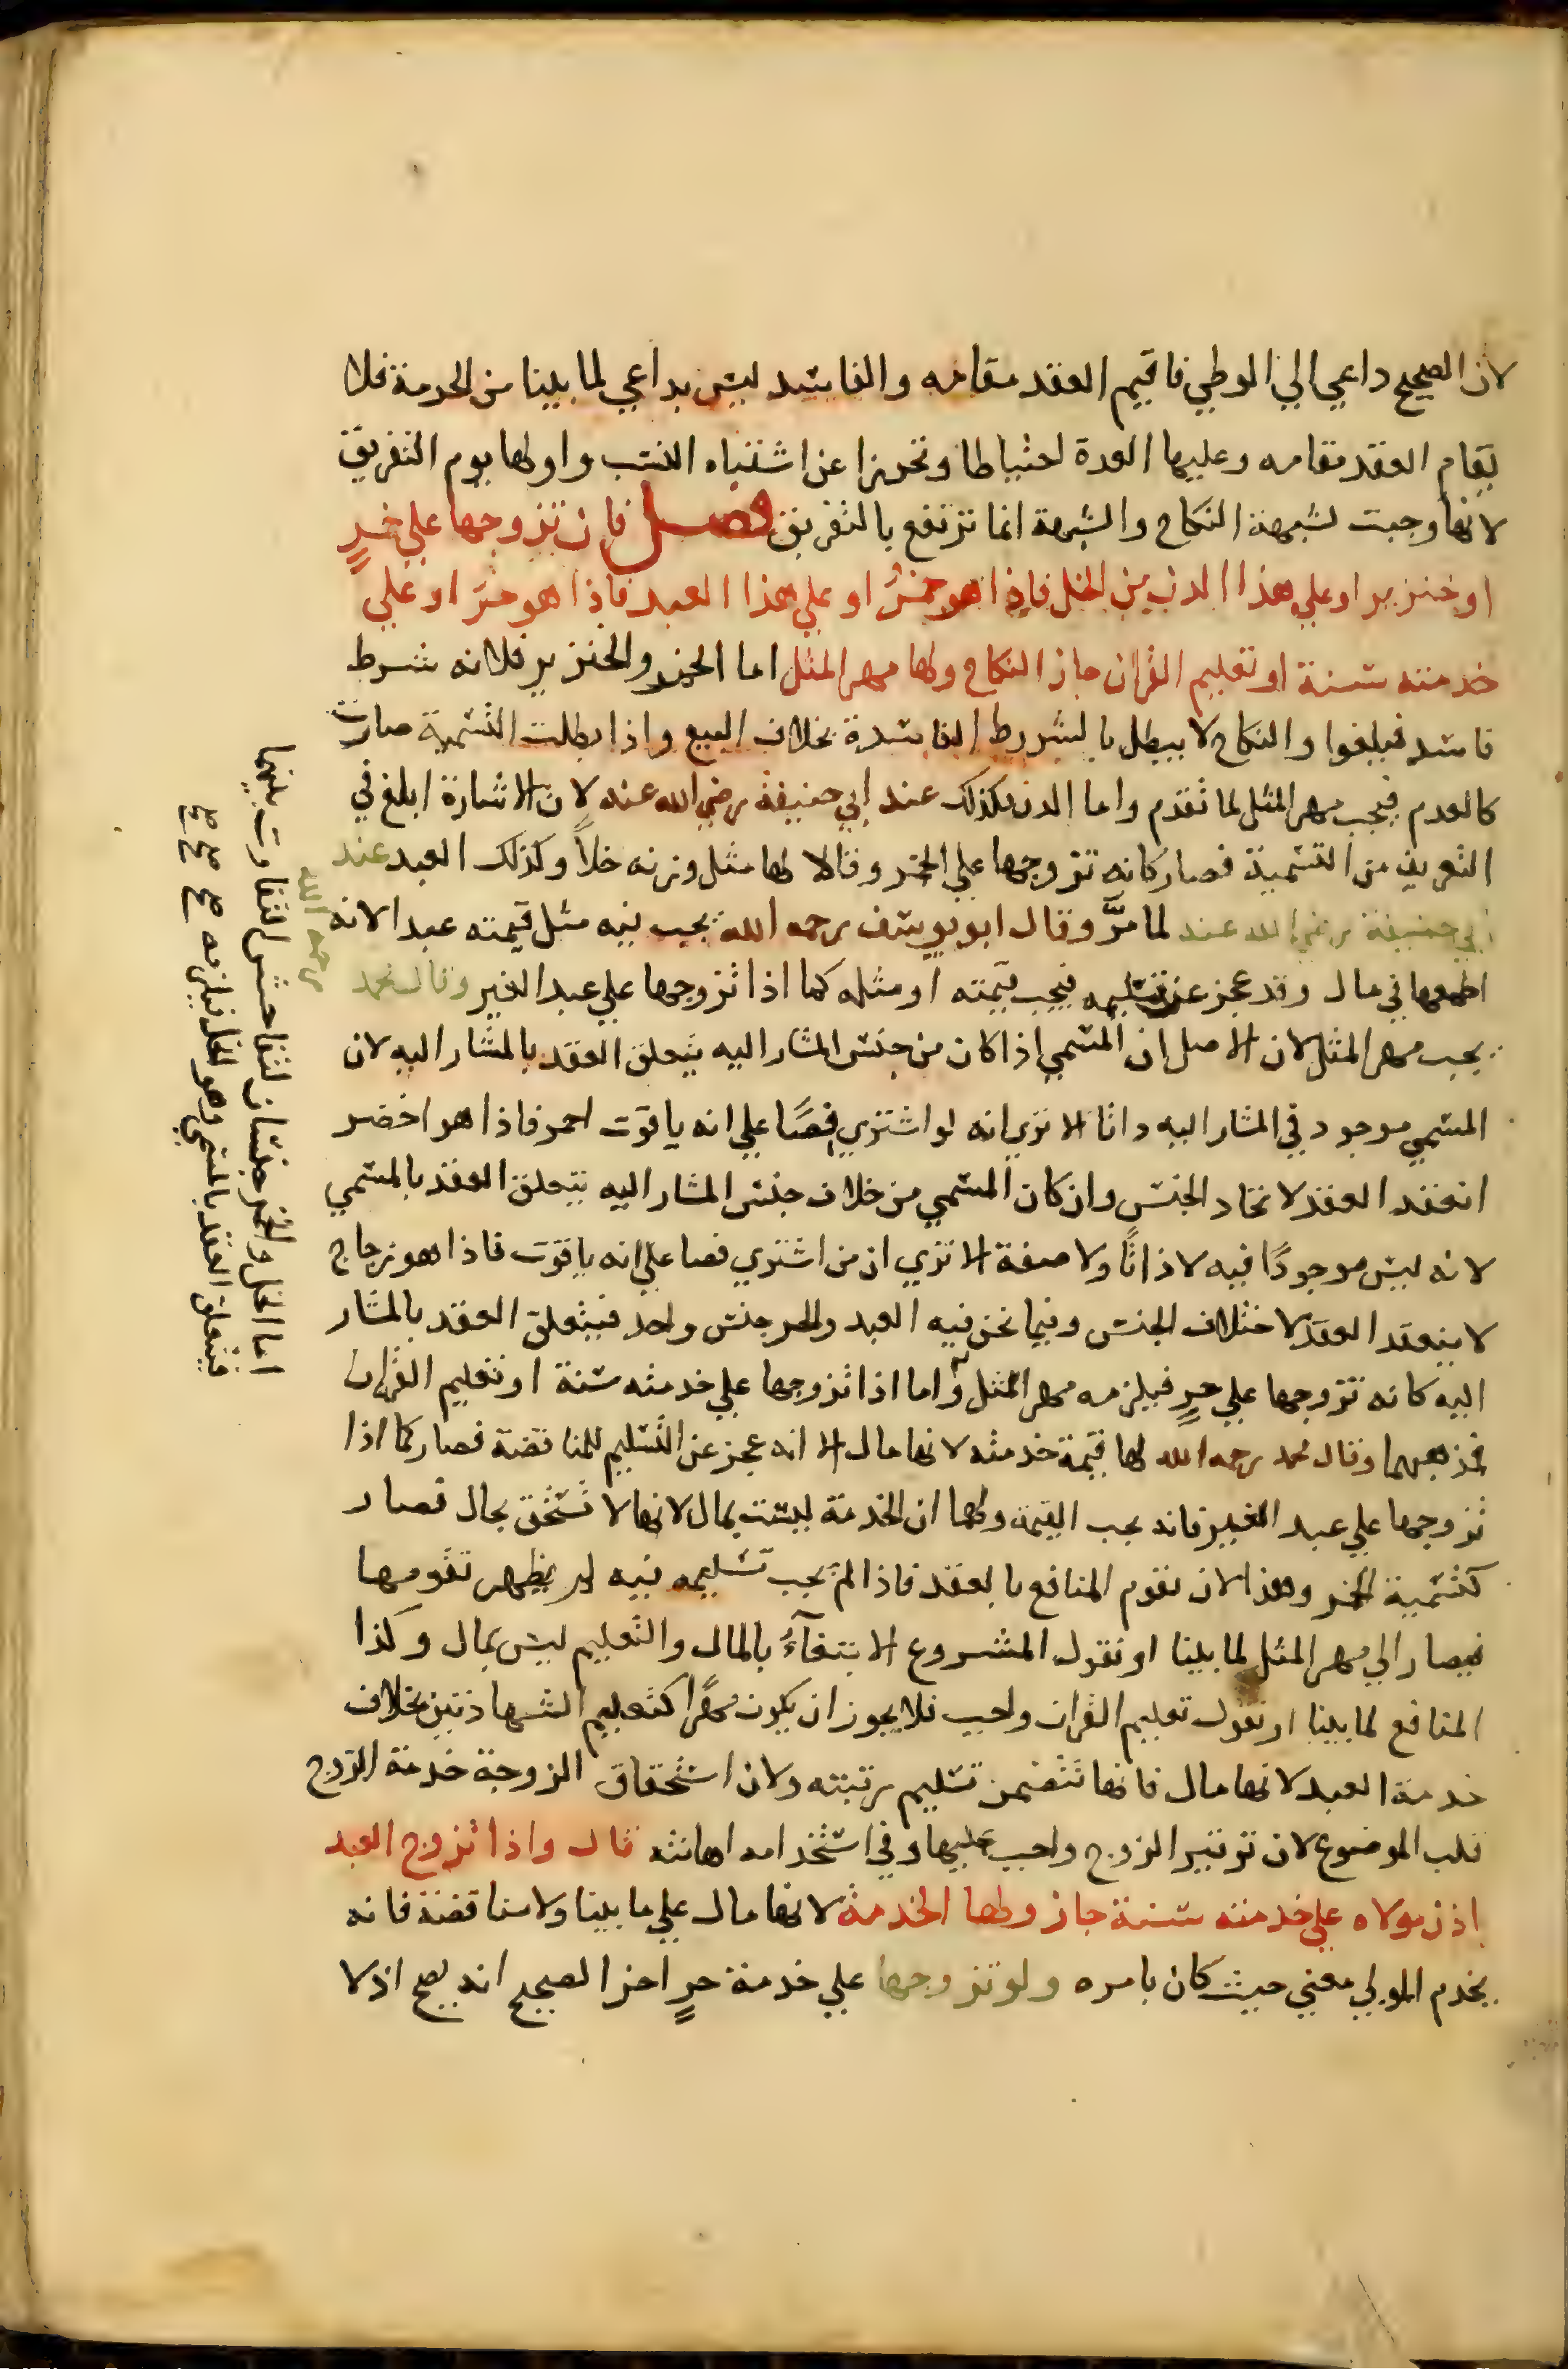 لان الصحيح داعي الي الوطي فاقيم العقد مقامه والفاسد ليس بداعي لما بينا من الحرمة فلا
يقام العقد مقامه وعليها العدة احتياطا وتحرزا عن اشتباه النسب واولها يوم التفريق
لانها وجبت لشبهة النكاح والشبهة انما ترتفع بالتفريق فصل فان تزوجها علي خمرٍ
او خنزير او علي هذا الدن من الخل فاذا هو خمرٌ او علي هذا العبد فاذا هو حرّ او علي
خدمته سنة او تعليم القران جاز النكاح ولها مهر المثل اما الخمر والخنزير فلانه شرط
فاسد فيلغوا والنكاح لا يبطل بالشروط الفاسدة بخلاف البيع واذا بطلت التسمية صارت
كالعدم فيجب مهر المثل لما تقدم واما الدن فكذلك عند ابي حنيفة رضي الله عنه لان الاشارة ابلغ في
التعريف من التسمية فصار كانه تزوجها علي الخمر وقالا لها مثل وزنه خلاً وكذلك العبد عند
ابي حنيفة رضي الله عنه لما مرّ وقال ابو يوسف رحمه الله يجب فيه مثل قيمته عبدا لانه
اطمعها في مال وقد عجز عن تسليمه فيجب قيمته او مثله كما اذا تزوجها علي عبد الغير وقال محمد
رحمه الله
يجب مهر المثل لان الاصل ان المسمي اذا كان من جنس المشار اليه يتعلق العقد بالمشار اليه لان
المسمي موجود في المشار اليه ذاتا الا تري انه لو اشتري فصًا علي انه ياقوت احمر فاذا هو اخضر
انعقد العقد لاتحاد الجنس وان كان المسمي من خلاف جنس المشار اليه يتعلق العقد بالمسمي
لانه ليس موجودًا فيه لا ذاتًا ولا صفة الا تري ان من اشتري فصا علي انه ياقوت فاذا هو زجاج
لا ينعقد العقد لاختلاف الجنس وفيما نحن فيه العبد والحر جنس واحد فيتعلق العقد بالمشار
اليه كانه تزوجها علي حرٍ فيلزمه مهر المثل واما اذا تزوجها علي خدمته سنة او تعليم القران
فمذهبهما وقال محمد رحمه الله لها قيمة خدمته لانها مال الا انه عجز عن التسليم للمناقضة فصار كما اذا
تزوجها علي عبد الغير فانه يجب القيمة ولهما ان الخدمة ليست بمال لانها لا تستحق بحال فصار
كتسمية الخمر وهذا لان تقوم المنافع بالعقد فاذا لم يجب تسليمه فيه لم يظهر تقومها
فيصار الي مهر المثل لما بينا او نقول المشروع الابتغآءُ بالمال والتعليم ليس بمال وكذا
المنافع لما بينا او نقول تعليم القران واجب فلا يجوز ان يكون مهرًا كتعليم الشهادتين بخلاف
خدمة العبد لانها مال فانها تتضمن تسليم رقبته ولان استحقاق الزوجة خدمة الزوج
قلب الموضوع لان توقير الزوج واجب عليها وفي استخدامه اهانته قال واذا تزوج العبد
باذن مولاه علي خدمته سنة جاز ولها الخدمة لانها مال علي ما بينا ولا مناقضة فانه
يخدم المولي معني حيث كان بامره ولو تزوجها علي خدمة حرٍ اخر الصحيح انه يصح اذ لا
اما الخل والخمر جنسان لتفاحش التفاوت بينهما
فيتعلق العقد بالمسمي وهو الخل فيلزمه صح صح صح